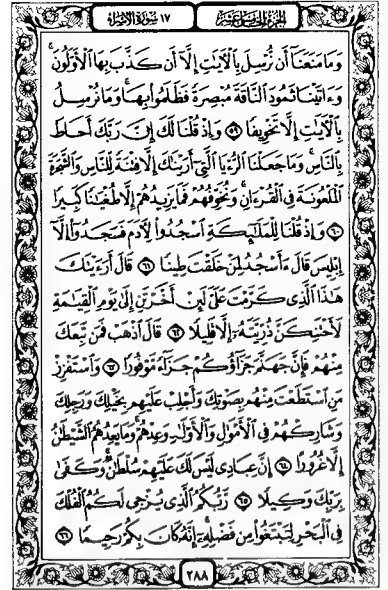 الجزء الخامس عشر
١٧ سورة الإسراء
وَمَا مَنَعَنَآ أَن نُّرْسِلَ بِٱلْأَيَٰتِ إِلَّآ أَن كَذَّبَ بِهَا ٱلْأَوَّلُونَ ۚ
وَءَاتَيْنَا ثَمُودَ ٱلنَّاقَةَ مُبْصِرَةً فَظَلَمُوا۟ بِهَا ۚ وَمَا نُرْسِلُ
بِٱلْأَيَٰتِ إِلَّا تَخْوِيفًا ٥٩ وَإِذْ قُلْنَا لَكَ إِنَّ رَبَّكَ أَحَاطَ
بِٱلنَّاسِ ۚ وَمَا جَعَلْنَا ٱلرُّءْيَا ٱلَّتِىٓ أَرَيْنَٰكَ إِلَّا فِتْنَةً لِّلنَّاسِ وَٱلشَّجَرَةَ
ٱلْمَلْعُونَةَ فِى ٱلْقُرْءَانِ ۚ وَنُخَوِّفُهُمْ فَمَا يَزِيدُهُمْ إِلَّا طُغْيَٰنًا كَبِيرًا
٦٠ وَإِذْ قُلْنَا لِلْمَلَٰٓئِكَةِ ٱسْجُدُوا۟ لِأَدَمَ فَسَجَدُوٓا۟ إِلَّآ
إِبْلِيسَ قَالَ ءَأَسْجُدُ لِمَنْ خَلَقْتَ طِينًا ٦١ قَالَ أَرَءَيْتَكَ
هَٰذَا ٱلَّذِى كَرَّمْتَ عَلَىَّ لَئِنْ أَخَّرْتَنِ إِلَىٰ يَوْمِ ٱلْقِيَٰمَةِ
لَأَحْتَنِكَنَّ ذُرِّيَّتَهُۥٓ إِلَّا قَلِيلًا ٦٢ قَالَ ٱذْهَبْ فَمَن تَبِعَكَ
مِنْهُمْ فَإِنَّ جَهَنَّمَ جَزَآؤُكُمْ جَزَآءً مَّوْفُورًا ٦٣ وَٱسْتَفْزِزْ
مَنِ ٱسْتَطَعْتَ مِنْهُم بِصَوْتِكَ وَأَجْلِبْ عَلَيْهِم بِخَيْلِكَ وَرَجِلِكَ
وَشَارِكْهُمْ فِى ٱلْأَمْوَٰلِ وَٱلْأَوْلَٰدِ وَعِدْهُمْ ۚ وَمَا يَعِدُهُمُ ٱلشَّيْطَٰنُ
إِلَّا غُرُورًا ٦٤ إِنَّ عِبَادِى لَيْسَ لَكَ عَلَيْهِمْ سُلْطَٰنٌ ۚ وَكَفَىٰ
بِرَبِّكَ وَكِيلًا ٦٥ رَّبُّكُمُ ٱلَّذِى يُزْجِى لَكُمُ ٱلْفُلْكَ
فِى ٱلْبَحْرِ لِتَبْتَغُوا۟ مِن فَضْلِهِۦٓ ۚ إِنَّهُۥ كَانَ بِكُمْ رَحِيمًا ٦٦
٢٨٨